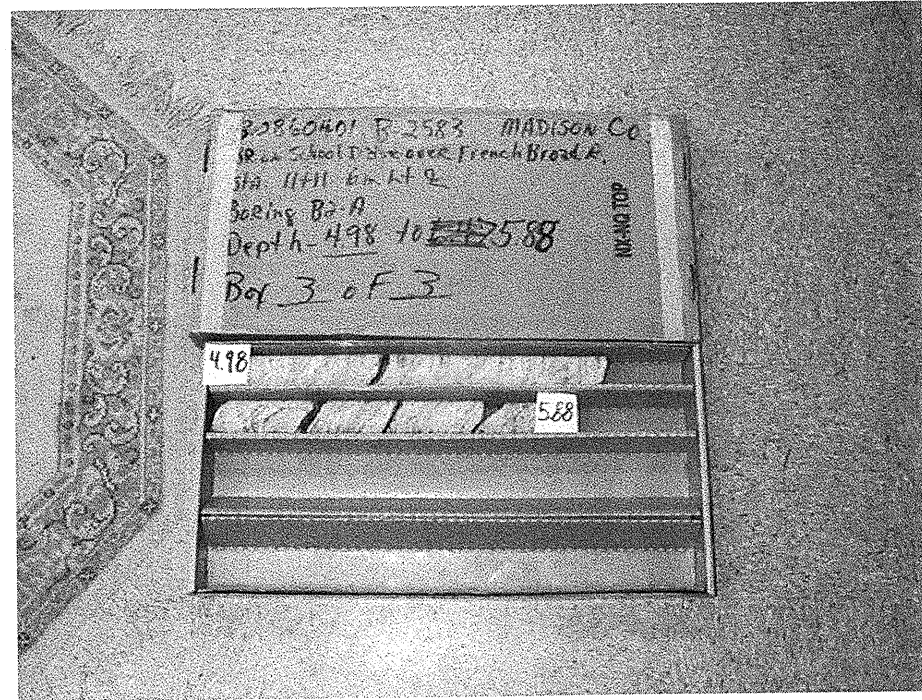 R-2583 MADISON Co
School over French Broad R.
Sta. 11+11 6m Lf
Boring B2-A
Depth - 498 to 588
Box 3 of 3
NX-NQ TOP
4.98
5.88